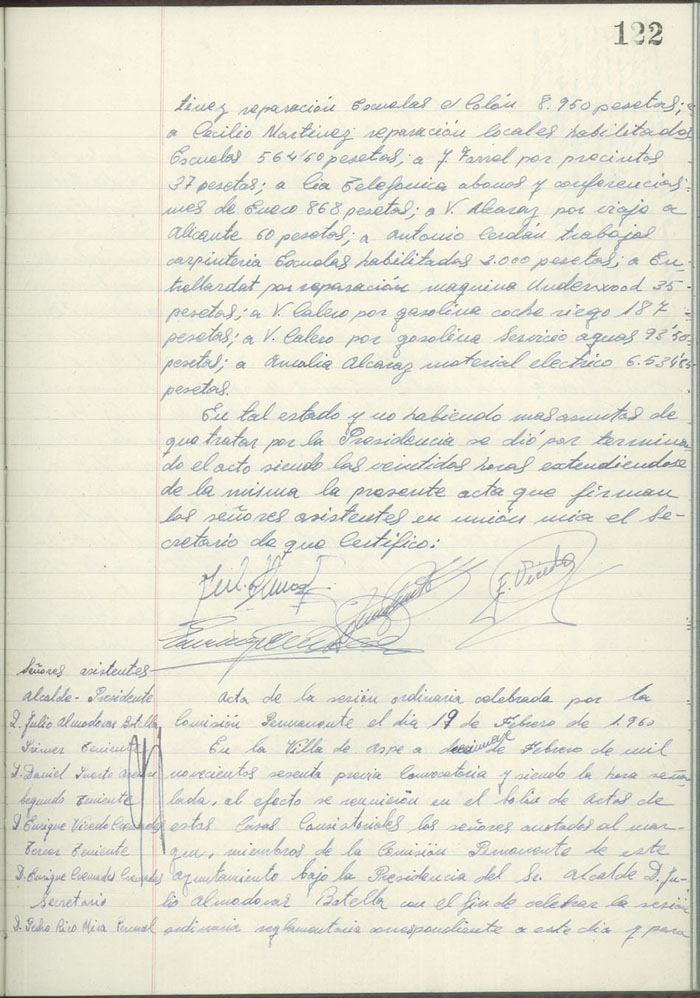 122
tinez reparación Escuelas el Colón 8.950 pesetas;
a Cecilio Martinez reparación locales habilitados
Escuelas 564'60 pesetas; a J Farrel por precintos
37 pesetas; a Cia Telefonica abonos y conferencias
mes de Enero 868 pesetas; a V. Alcaraz por viaje a
Alicante 60 pesetas; a Antonio Cerdán trabajos
carpinteria Escuelas habilitadas 2.000 pesetas; a
por reparación maquina Underwood 35
pesetas; a V. Calero por gasolina coche riego 187
pesetas; a V. Calero por gasolina Servicio aguas 93'50
pesetas; a Amalia Alcaraz material electrico
pesetas.
En tal estado y no habiendo mas asuntos de
que tratar por la Presidencia se dió por termina
do el acto siendo las veintidos horas extendiendose
de la misma la presente acta que firman
los señores asistentes en unión mia el Se-
cretario de que Certifico:
F. Vicedo
Señores asistentes
Alcalde-Presidente
D. Julio Almodovar Botella
Primer Teniente
D. Daniel Puerto
Segundo Teniente
D. Enrique Vicedo Cremades
Tercer Teniente
D. Enrique Cremades Cremades
Secretario
D. Pedro Rico Mira Personal
Acta de la sesión ordinaria celebrada por la
Comisión Permanente el dia 19 de Febrero de 1.960
En la Villa de Aspe a diecinueve de Febrero de mil
novecientos sesenta previa Convocatoria y siendo la hora seña
lada, al efecto se reunieron en el Salón de Actos de
estas Casas Consistoriales los señores anotados al mar-
gen, miembros de la Comisión Permanente de este
Ayuntamiento bajo la Presidencia del Sr. Alcalde D. Ju-
lio Almodovar Botella con el fin de celebrar la sesión
ordinaria reglamentaria correspondiente a este dia y para